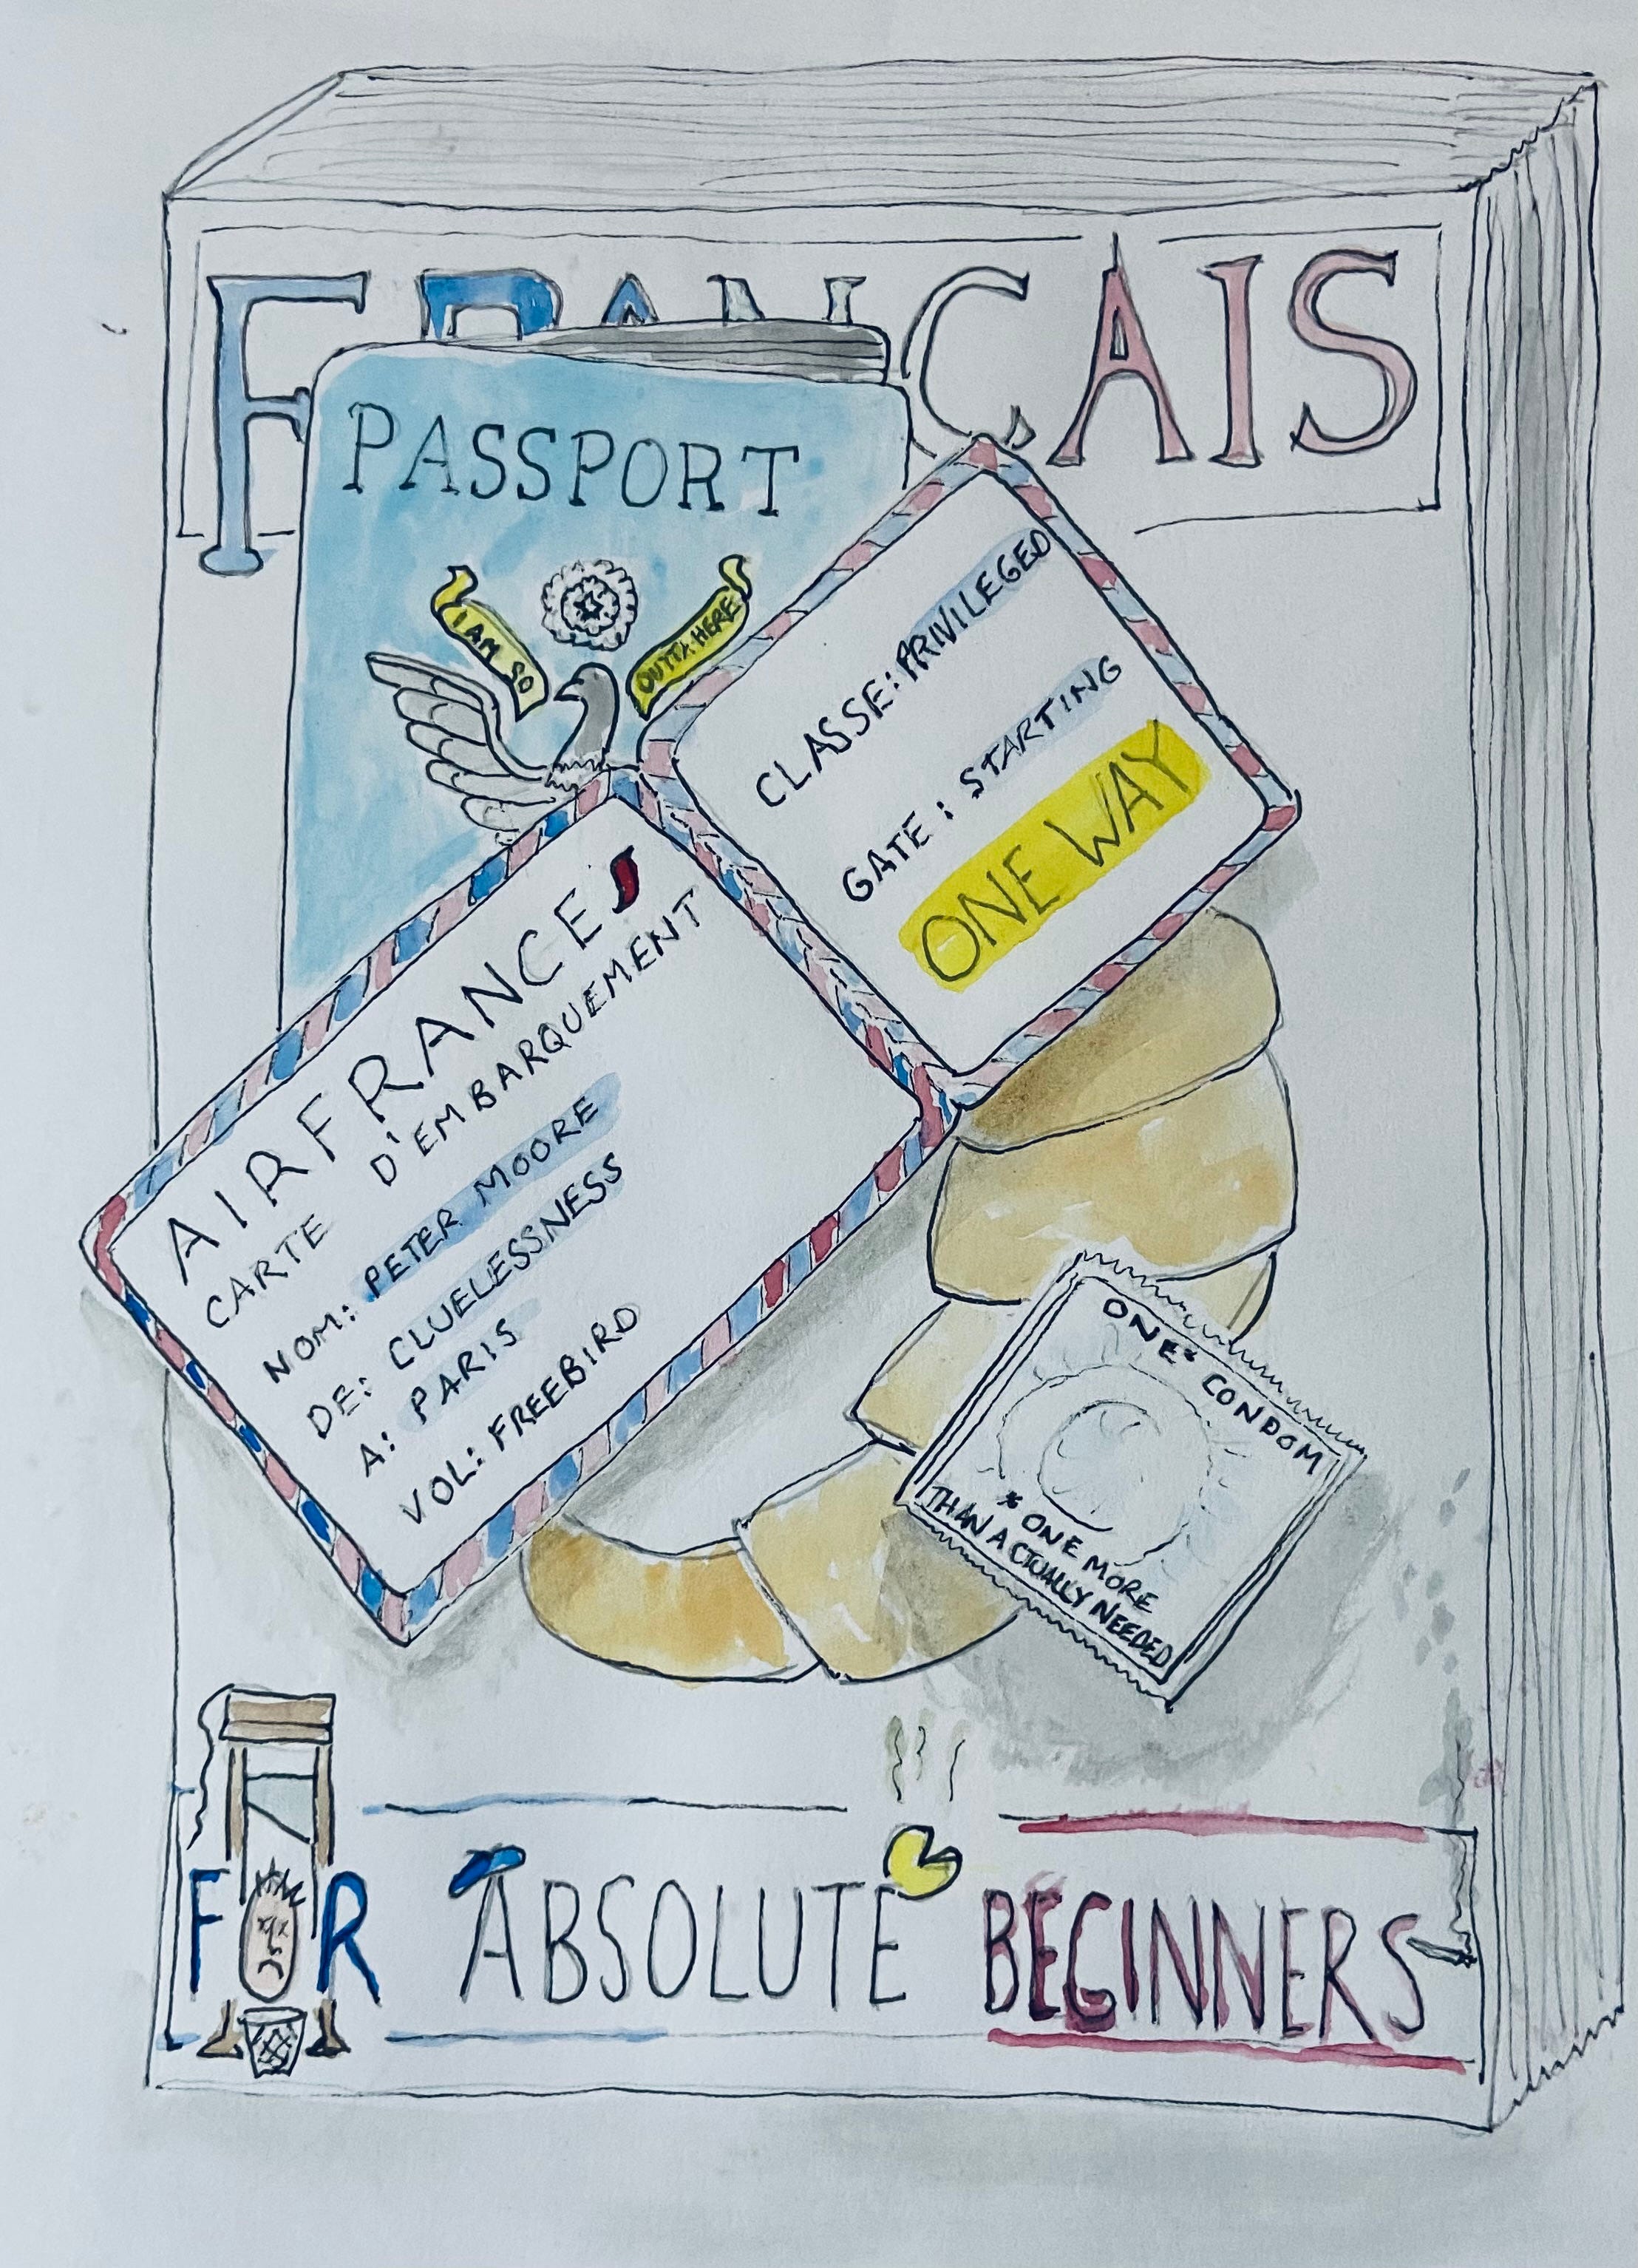 FRANÇAIS
PASSPORT
I AM SO
OUTTA HERE
CLASSE: PRIVILEGED
GATE: STARTING
ONE WAY
AIRFRANCE
CARTE D'EMBARQUEMENT
NOM: PETER MOORE
DE: CLUELESSNESS
A: PARIS
VOL: FREEBIRD
ONE* CONDOM
* ONE MORE
THAN ACTUALLY NEEDED
FOR ABSOLUTE BEGINNERS